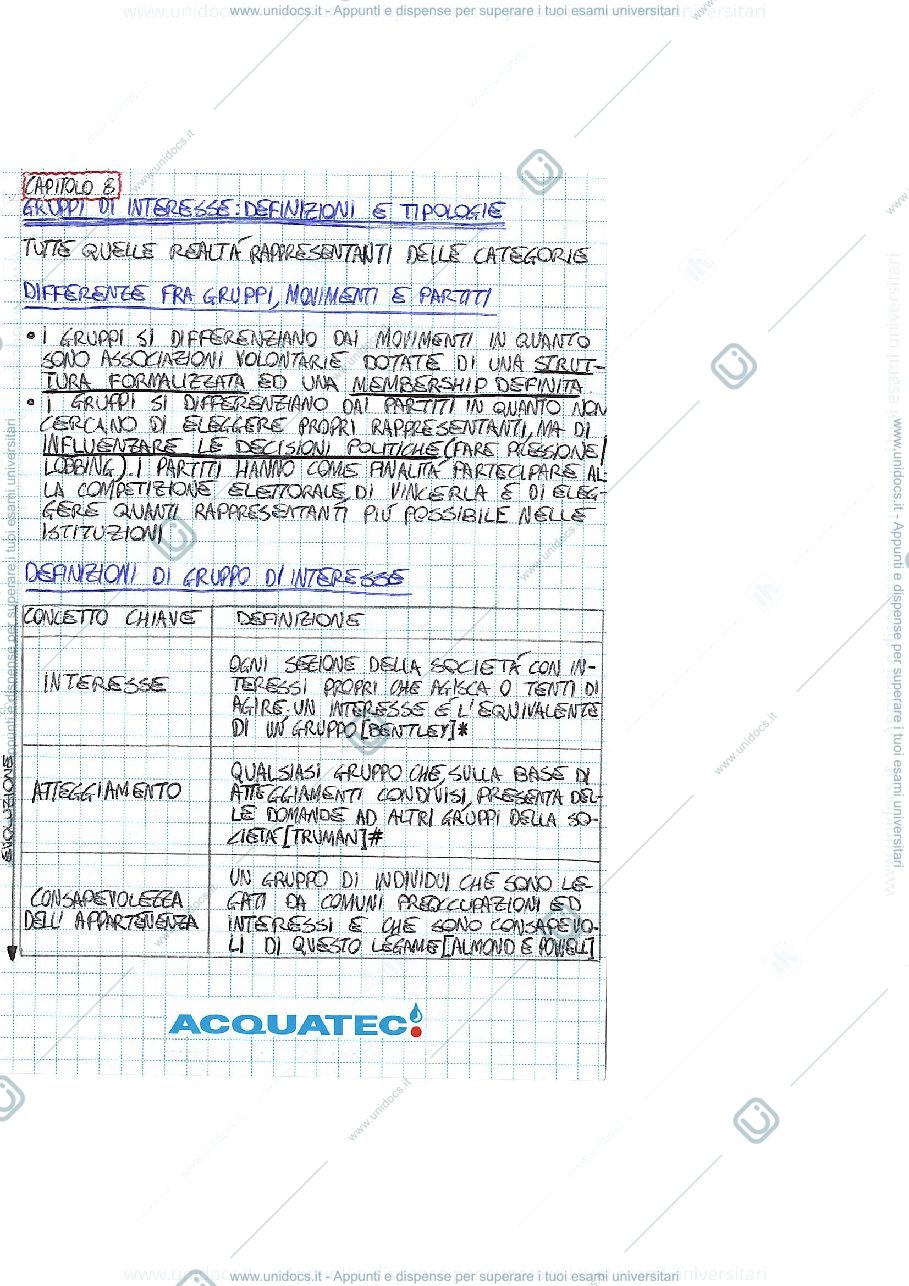 www.unidocs.it - Appunti e dispense per superare i tuoi esami universitari
CAPITOLO 8
GRUPPI DI INTERESSE: DEFINIZIONI E TIPOLOGIE
TUTTE QUELLE REALTÀ RAPPRESENTANTI DELLE CATEGORIE
DIFFERENZE FRA GRUPPI, MOVIMENTI E PARTITI
• I GRUPPI SI DIFFERENZIANO DAI MOVIMENTI IN QUANTO
SONO ASSOCIAZIONI VOLONTARIE DOTATE DI UNA STRUT-
TURA FORMALIZZATA ED UNA MEMBERSHIP DEFINITA
• I GRUPPI SI DIFFERENZIANO DAI PARTITI IN QUANTO NON
CERCANO DI ELEGGERE PROPRI RAPPRESENTANTI, MA DI
INFLUENZARE LE DECISIONI POLITICHE (FARE PRESSIONE/
LOBBING). I PARTITI HANNO COME FINALITÀ PARTECIPARE AL-
LA COMPETIZIONE ELETTORALE, DI VINCERLA E DI ELEG-
GERE QUANTI RAPPRESENTANTI PIÙ POSSIBILE NELLE
ISTITUZIONI
DEFINIZIONI DI GRUPPO DI INTERESSE
CONCETTO CHIAVE DEFINIZIONE
INTERESSE
OGNI SEZIONE DELLA SOCIETÀ CON IN-
TERESSI PROPRI CHE AGISCA O TENTI DI
AGIRE. UN INTERESSE È L'EQUIVALENTE
DI UN GRUPPO [BENTLEY]*
ATTEGGIAMENTO
QUALSIASI GRUPPO CHE, SULLA BASE DI
ATTEGGIAMENTI CONDIVISI, PRESENTA DEL-
LE DOMANDE AD ALTRI GRUPPI DELLA SO-
CIETÀ [TRUMAN]#
CONSAPEVOLEZZA
DELL'APPARTENENZA
UN GRUPPO DI INDIVIDUI CHE SONO LE-
GATI DA COMUNI PREOCCUPAZIONI ED
INTERESSI E CHE SONO CONSAPEVO-
LI DI QUESTO LEGAME [ALMOND E POWELL]
EVOLUZIONE
ACQUATEC
www.unidocs.it - Appunti e dispense per superare i tuoi esami universitari
www.unidocs.it - Appunti e dispense per superare i tuoi esami universitari